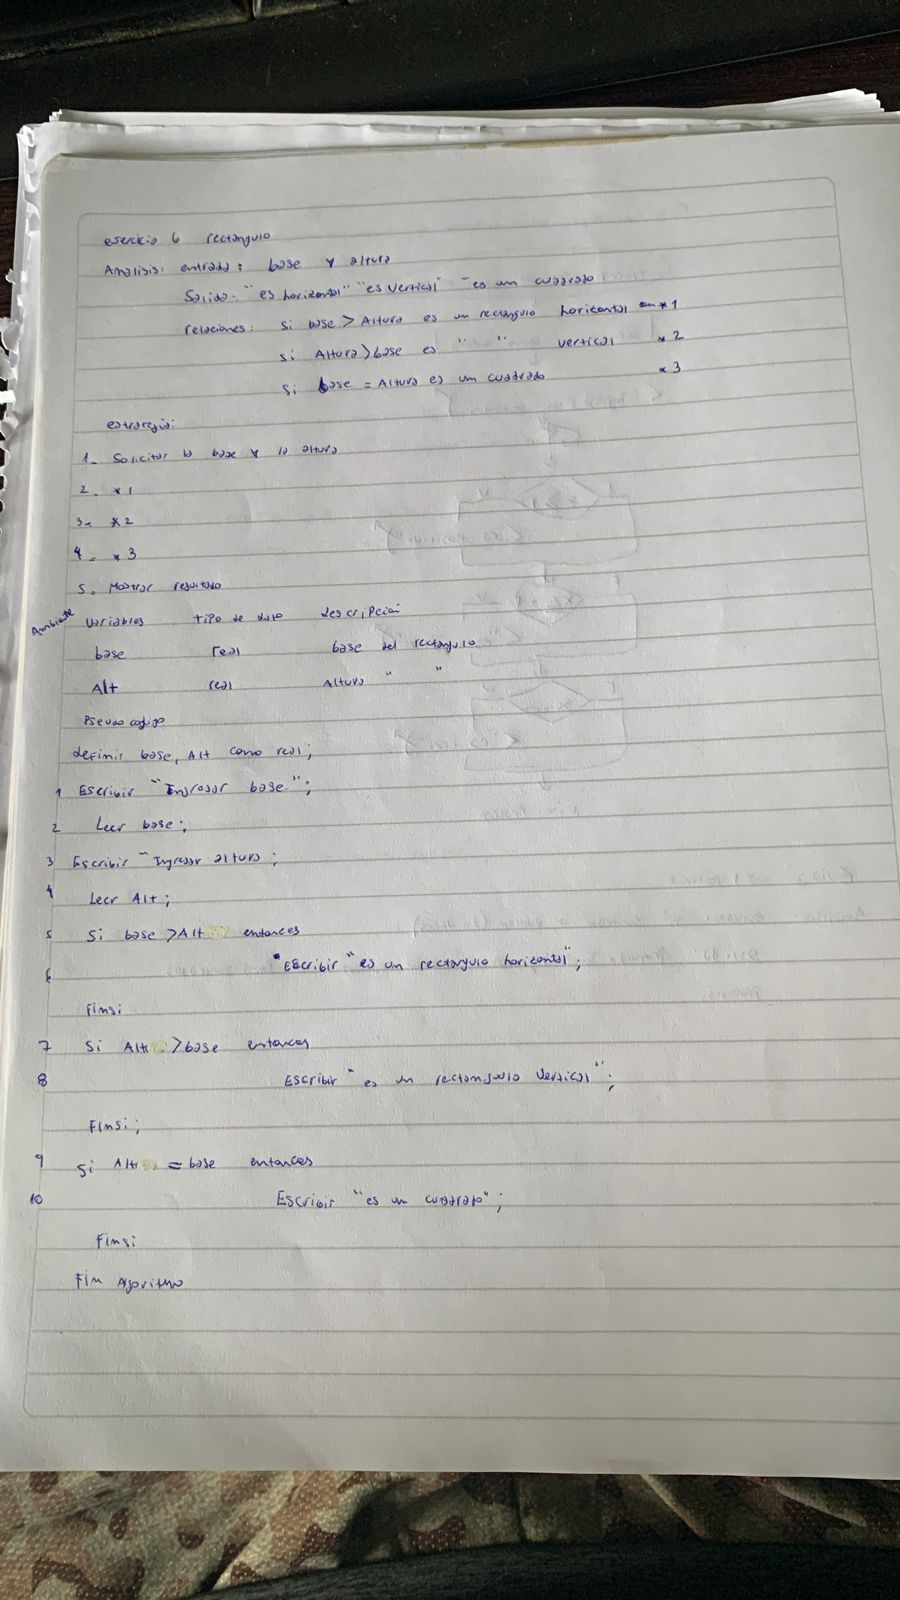 esercicio 6 rectangulo
Analisis: entrada: base y altura
Salida: "es horizontal" "es vertical" "es un cuadrado
relaciones: si base > Altura es un rectangulo horizontal *1
si Altura > base es " " vertical *2
si base = Altura es un cuadrado *3
estrategia:
1- Solicitar la base y la altura
2. *1
3- *2
4- *3
5. Mostrar resultado
Ambiente Variables tipo de dato descripcion
base real base del rectangulo
Alt real Altura " "
Pseudo codigo
definir base, Alt como real;
1 Escribir "Ingresar base";
2 Leer base;
3 Escribir "Ingresar altura;
4 Leer Alt;
5 Si base > Alt entonces
6 "Escribir "es un rectangulo horizontal";
Finsi
7 Si Alt > base entonces
8 Escribir "es un rectangulo vertical";
Finsi;
9 Si Alt = base entonces
10 Escribir "es un cuadrado";
Finsi
Fin Algoritmo